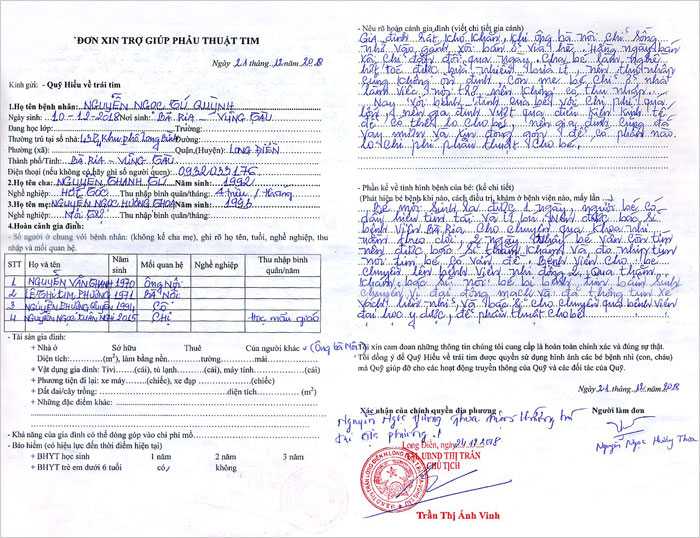 ĐƠN XIN TRỢ GIÚP PHẪU THUẬT TIM
Ngày 21 tháng 12 năm 2018
Kính gửi: - Quỹ Hiểu về trái tim
1.Họ tên bệnh nhân: NGUYỄN NGỌC TÚ QUỲNH
Ngày sinh: 10-12-2018 Nơi sinh: BÀ RỊA - VŨNG TÀU
Đang học lớp: Trường:
Thường trú tại số nhà: Khu phố Long
Phường (xã): Quận,(Huyện): LONG ĐIỀN
Thành phố/Tỉnh: BÀ RỊA - VŨNG TÀU
Điện thoại (nếu không có hãy ghi số người quen): 0932033176
2.Họ tên cha: NGUYỄN THANH TÚ Năm sinh: 1992
Nghề nghiệp: HỚT TÓC Thu nhập bình quân/tháng: 4 triệu / tháng
3.Họ tên mẹ: NGUYỄN NGỌC HƯƠNG THOA Năm sinh: 1996
Nghề nghiệp: Nội trợ Thu nhập bình quân/tháng:
4.Hoàn cảnh gia đình:
- Số người ở chung với bệnh nhân: (không kể cha mẹ), ghi rõ họ tên, tuổi, nghề nghiệp, thu nhập và mối quan hệ.
STT Họ và tên Năm sinh Mối quan hệ Nghề nghiệp Thu nhập bình quân/năm
1 NGUYỄN VĂN 1970 Ông Nội
2 LÊ THỊ KIM PHƯỢNG 1971 BÀ NỘI
3 NGUYỄN PHƯỢNG 1994 CÔ
4 NGUYỄN NGỌC XUÂN NGHI 2015 CHỊ học mẫu giáo
- Tài sản gia đình:
+ Nhà ở Sở hữu Thuê Của người khác (Ông bà Nội)
Diện tích:(m²), làm bằng nền: tường: mái
+ Vật dụng gia đình: Tivi (cái), tủ lạnh (cái), máy tính (cái)
+ Phương tiện đi lại: xe máy (chiếc), xe đạp (chiếc)
+ Đất đai/cây trồng: diện tích (m²)
+ Những đặc điểm khác:
- Khả năng của gia đình có thể đóng góp vào chi phí mổ
- Bảo hiểm (có hiệu lực đến thời điểm hiện tại)
+ BHYT học sinh 1 năm 2 năm 3 năm
+ BHYT trẻ em dưới 6 tuổi có không
- Nêu rõ hoàn cảnh gia đình (viết chi tiết gia cảnh)
Gia đình rất khó khăn, khi ông bà nội chỉ sống
nhờ vào gánh xôi bán ở vỉa hè. Hằng ngày bán
xôi chỉ đắp đổi qua ngày. Cha bé làm nghề
hớt tóc được bao nhiêu nên thu nhập
cũng không ổn định. Còn mẹ bé chỉ ở nhà
làm việc nội trợ, nên không có thu nhập.
Nay với bệnh tình của bé với chi phí quá
lớn, nên gia đình vượt quá điều kiện kinh tế
để có thể lo cho bé, nên gia đình cũng đã
vay mượn và xin đóng góp, để có phần nào
lo chi phí phẫu thuật cho bé.
- Phần kể về tình hình bệnh của bé: (kể chi tiết)
(Phát hiện bé bệnh khi nào, cách điều trị, khám ở bệnh viện nào, mấy lần ...)
Bé mới sinh ra được 1 ngày, người bé có
dấu hiệu tím tái và lì hơn. Nên được bác sĩ
bệnh viện Bà Rịa cho chuyển qua khoa nhi
nằm theo dõi 2 ngày thấy bé vẫn còn tím
nên được bác sĩ thăm khám và đo nhịp tim
nói tim bé có vấn đề. Bệnh viện cho bé
chuyển lên bệnh viện nhi đồng 2. Qua thăm
khám, bác sĩ nói bé bị bệnh tim bẩm sinh
chuyển vị đại động mạch và đã thông tim xé
vách liên nhĩ và bác sĩ cho chuyển qua bệnh viện
đại học y dược, để phẫu thuật cho bé.
Tôi xin cam đoan những thông tin chúng tôi cung cấp là hoàn toàn chính xác và đúng sự thật.
Tôi đồng ý để Quỹ Hiểu về trái tim được quyền sử dụng hình ảnh các bé bệnh nhi (con, cháu)
mà Quỹ giúp đỡ cho các hoạt động truyền thông của Quỹ và các đối tác của Quỹ.
Ngày 21 tháng 12 năm 2018
Xác nhận của chính quyền địa phương Người làm đơn
Nguyễn Ngọc Hương Thoa thường trú
tại địa phương.
Long Điền, ngày 24/12/2018
TM. UBND THỊ TRẤN
CHỦ TỊCH
Nguyễn Ngọc Hương Thoa
Trần Thị Ánh Vinh